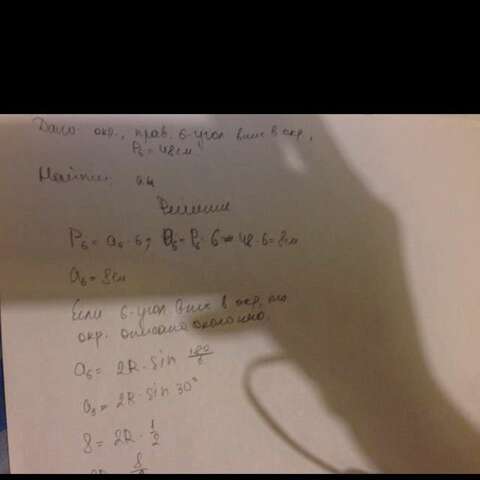 Дано: окр., прав. 6-угол впис в окр.,
P₆ = 48см
Найти: a₄
Решение
P₆ = a₆ · 6; a₆ = P₆ : 6 = 48 : 6 = 8см
a₆ = 8см
Если 6-угол. впис в окр, то
окр. описана около него.
a₆ = 2R · sin 180/6
a₆ = 2R · sin 30°
8 = 2R · 1/2
2R 8